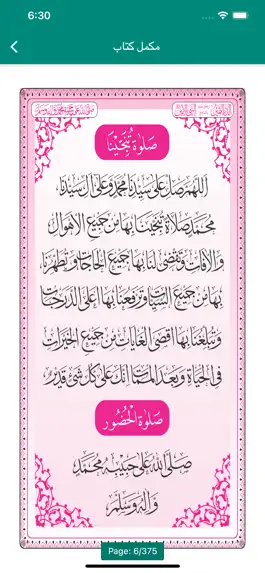 6:30
مکمل کتاب
صَلٰوةُ تُنَجِّيْنَا
اَللّٰهُمَّ صَلِّ عَلٰى سَيِّدِنَا مُحَمَّدٍ وَّعَلٰى اٰلِ سَيِّدِنَا
مُحَمَّدٍ صَلَاةً تُنَجِّيْنَا بِهَا مِنْ جَمِيْعِ الْاَهْوَالِ
وَالْاٰفَاتِ وَتَقْضِىْ لَنَا بِهَا جَمِيْعَ الْحَاجَاتِ وَتُطَهِّرُنَا
بِهَا مِنْ جَمِيْعِ السَّيِّئَاتِ وَتَرْفَعُنَا بِهَا اَعْلَى الدَّرَجَاتِ
وَتُبَلِّغُنَا بِهَا اَقْصَى الْغَايَاتِ مِنْ جَمِيْعِ الْخَيْرَاتِ
فِى الْحَيَاةِ وَبَعْدَ الْمَمَاتِ اِنَّكَ عَلٰى كُلِّ شَىْءٍ قَدِيْرٌ
صَلٰوةُ الْحُضُوْر
صَلَّى اللّٰهُ عَلٰى حَبِيْبِهٖ مُحَمَّدٍ
وَّاٰلِهٖ وَسَلَّمَ
Page: 6/375